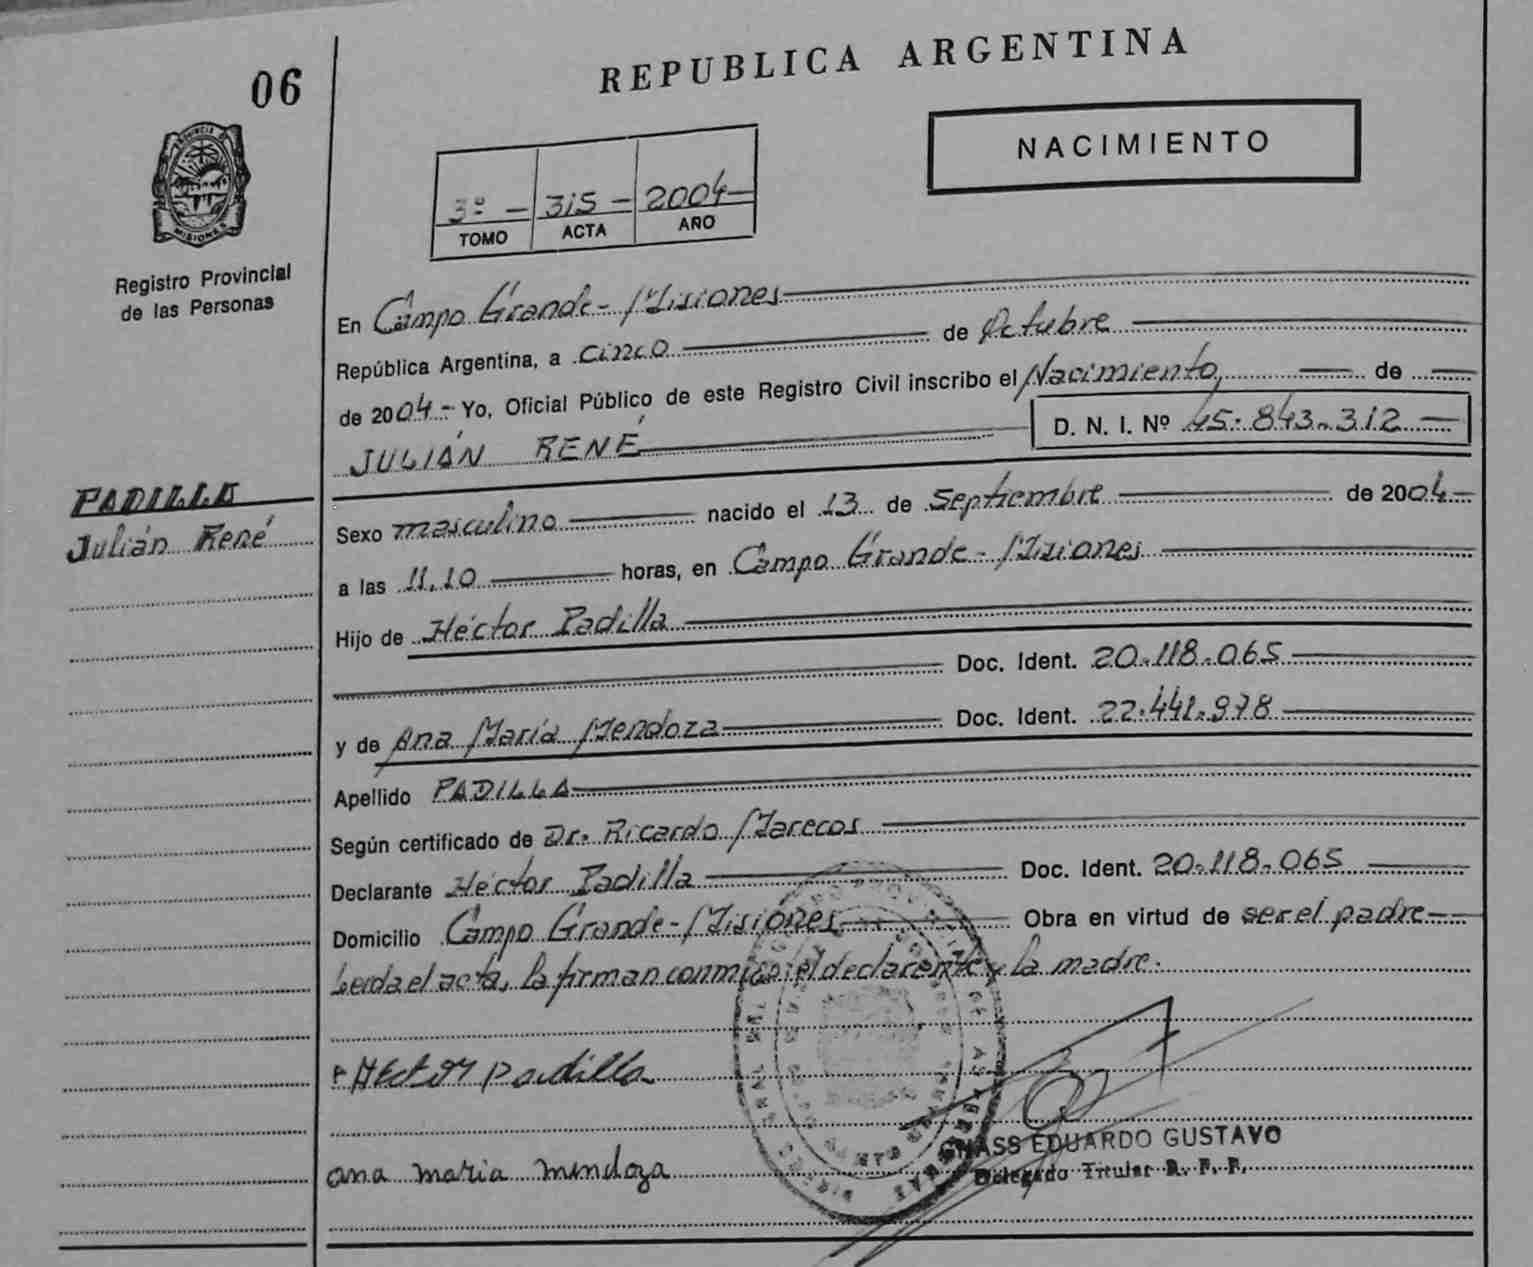 06
REPUBLICA ARGENTINA
NACIMIENTO
3º - 315 - 2004 -
TOMO ACTA AÑO
PROVINCIA DE
MISIONES
Registro Provincial
de las Personas
En Campo Grande - Misiones
República Argentina, a cinco de Octubre
de 2004 - Yo, Oficial Público de este Registro Civil inscribo el Nacimiento, de
JULIÁN RENÉ
D. N. I. Nº 45.843.312
PADILLA
Julián René
Sexo masculino nacido el 13 de Septiembre de 2004 -
a las 11.10 horas, en Campo Grande - Misiones
Hijo de Héctor Padilla
Doc. Ident. 20.118.065
y de Ana María Mendoza Doc. Ident. 22.441.978
Apellido PADILLA
Según certificado de Dr. Ricardo Marecos
Declarante Héctor Padilla Doc. Ident. 20.118.065
Domicilio Campo Grande - Misiones Obra en virtud de ser el padre -
Leida el acta, la firman conmigo: el declarante y la madre.
Héctor Padilla
GNASS EDUARDO GUSTAVO
Delegado Titular R. P. P.
ana maria mendoza